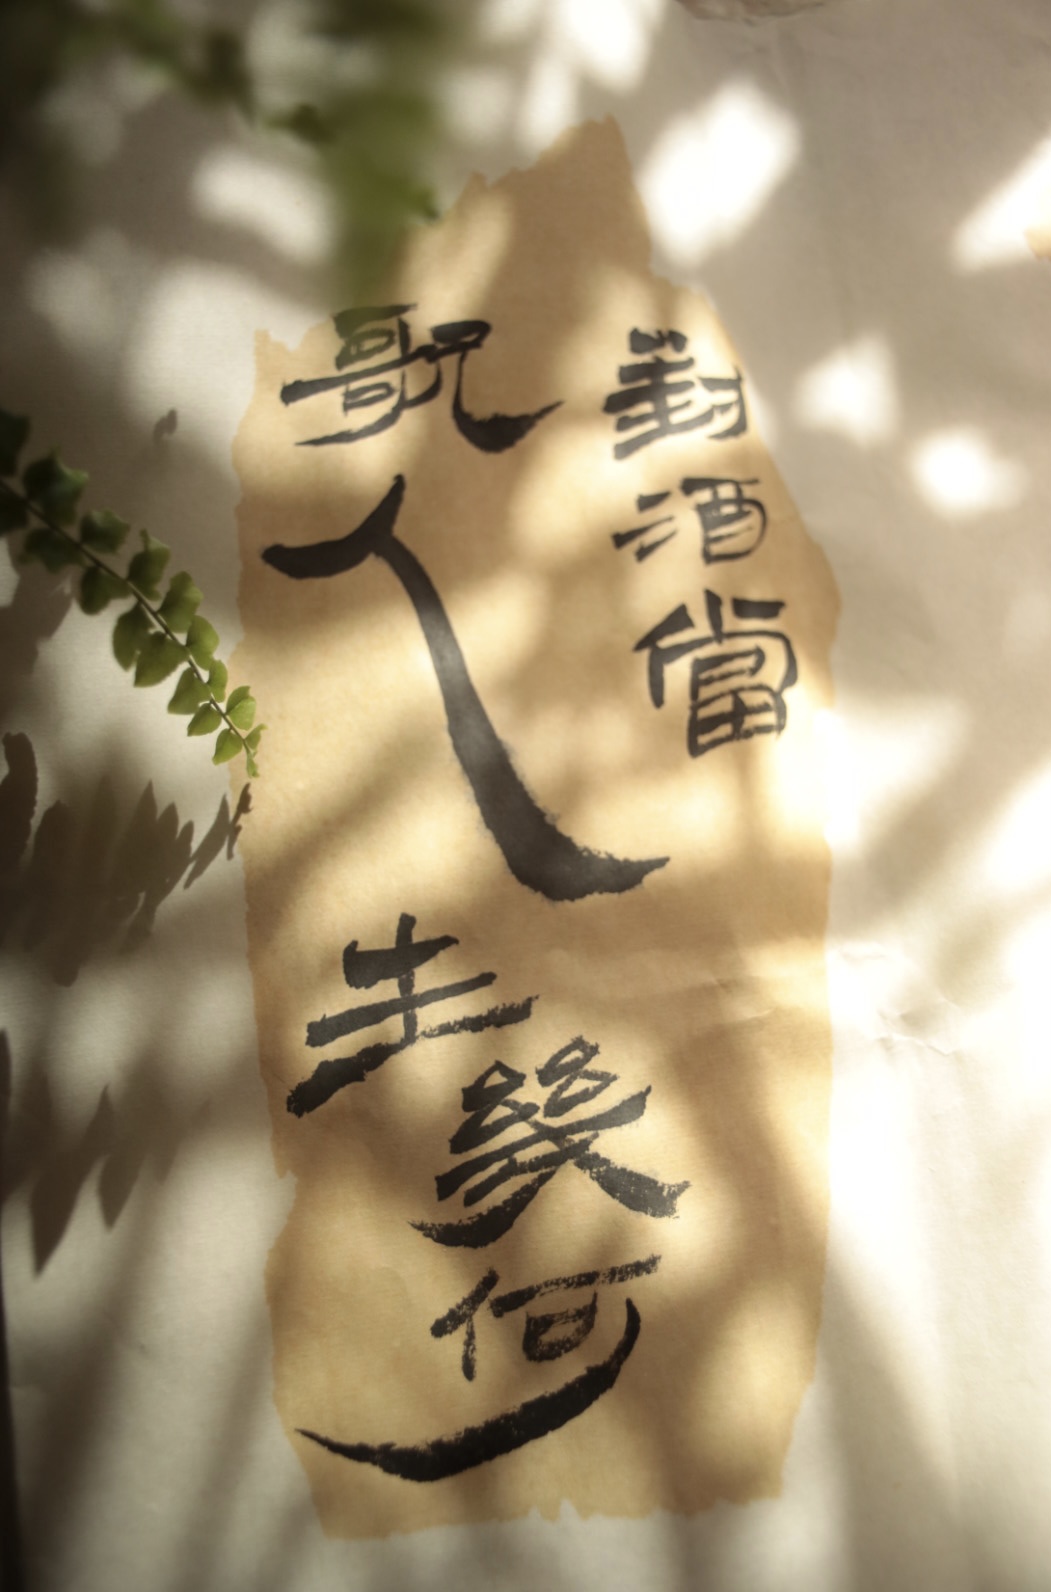 對酒當
歌人生幾何